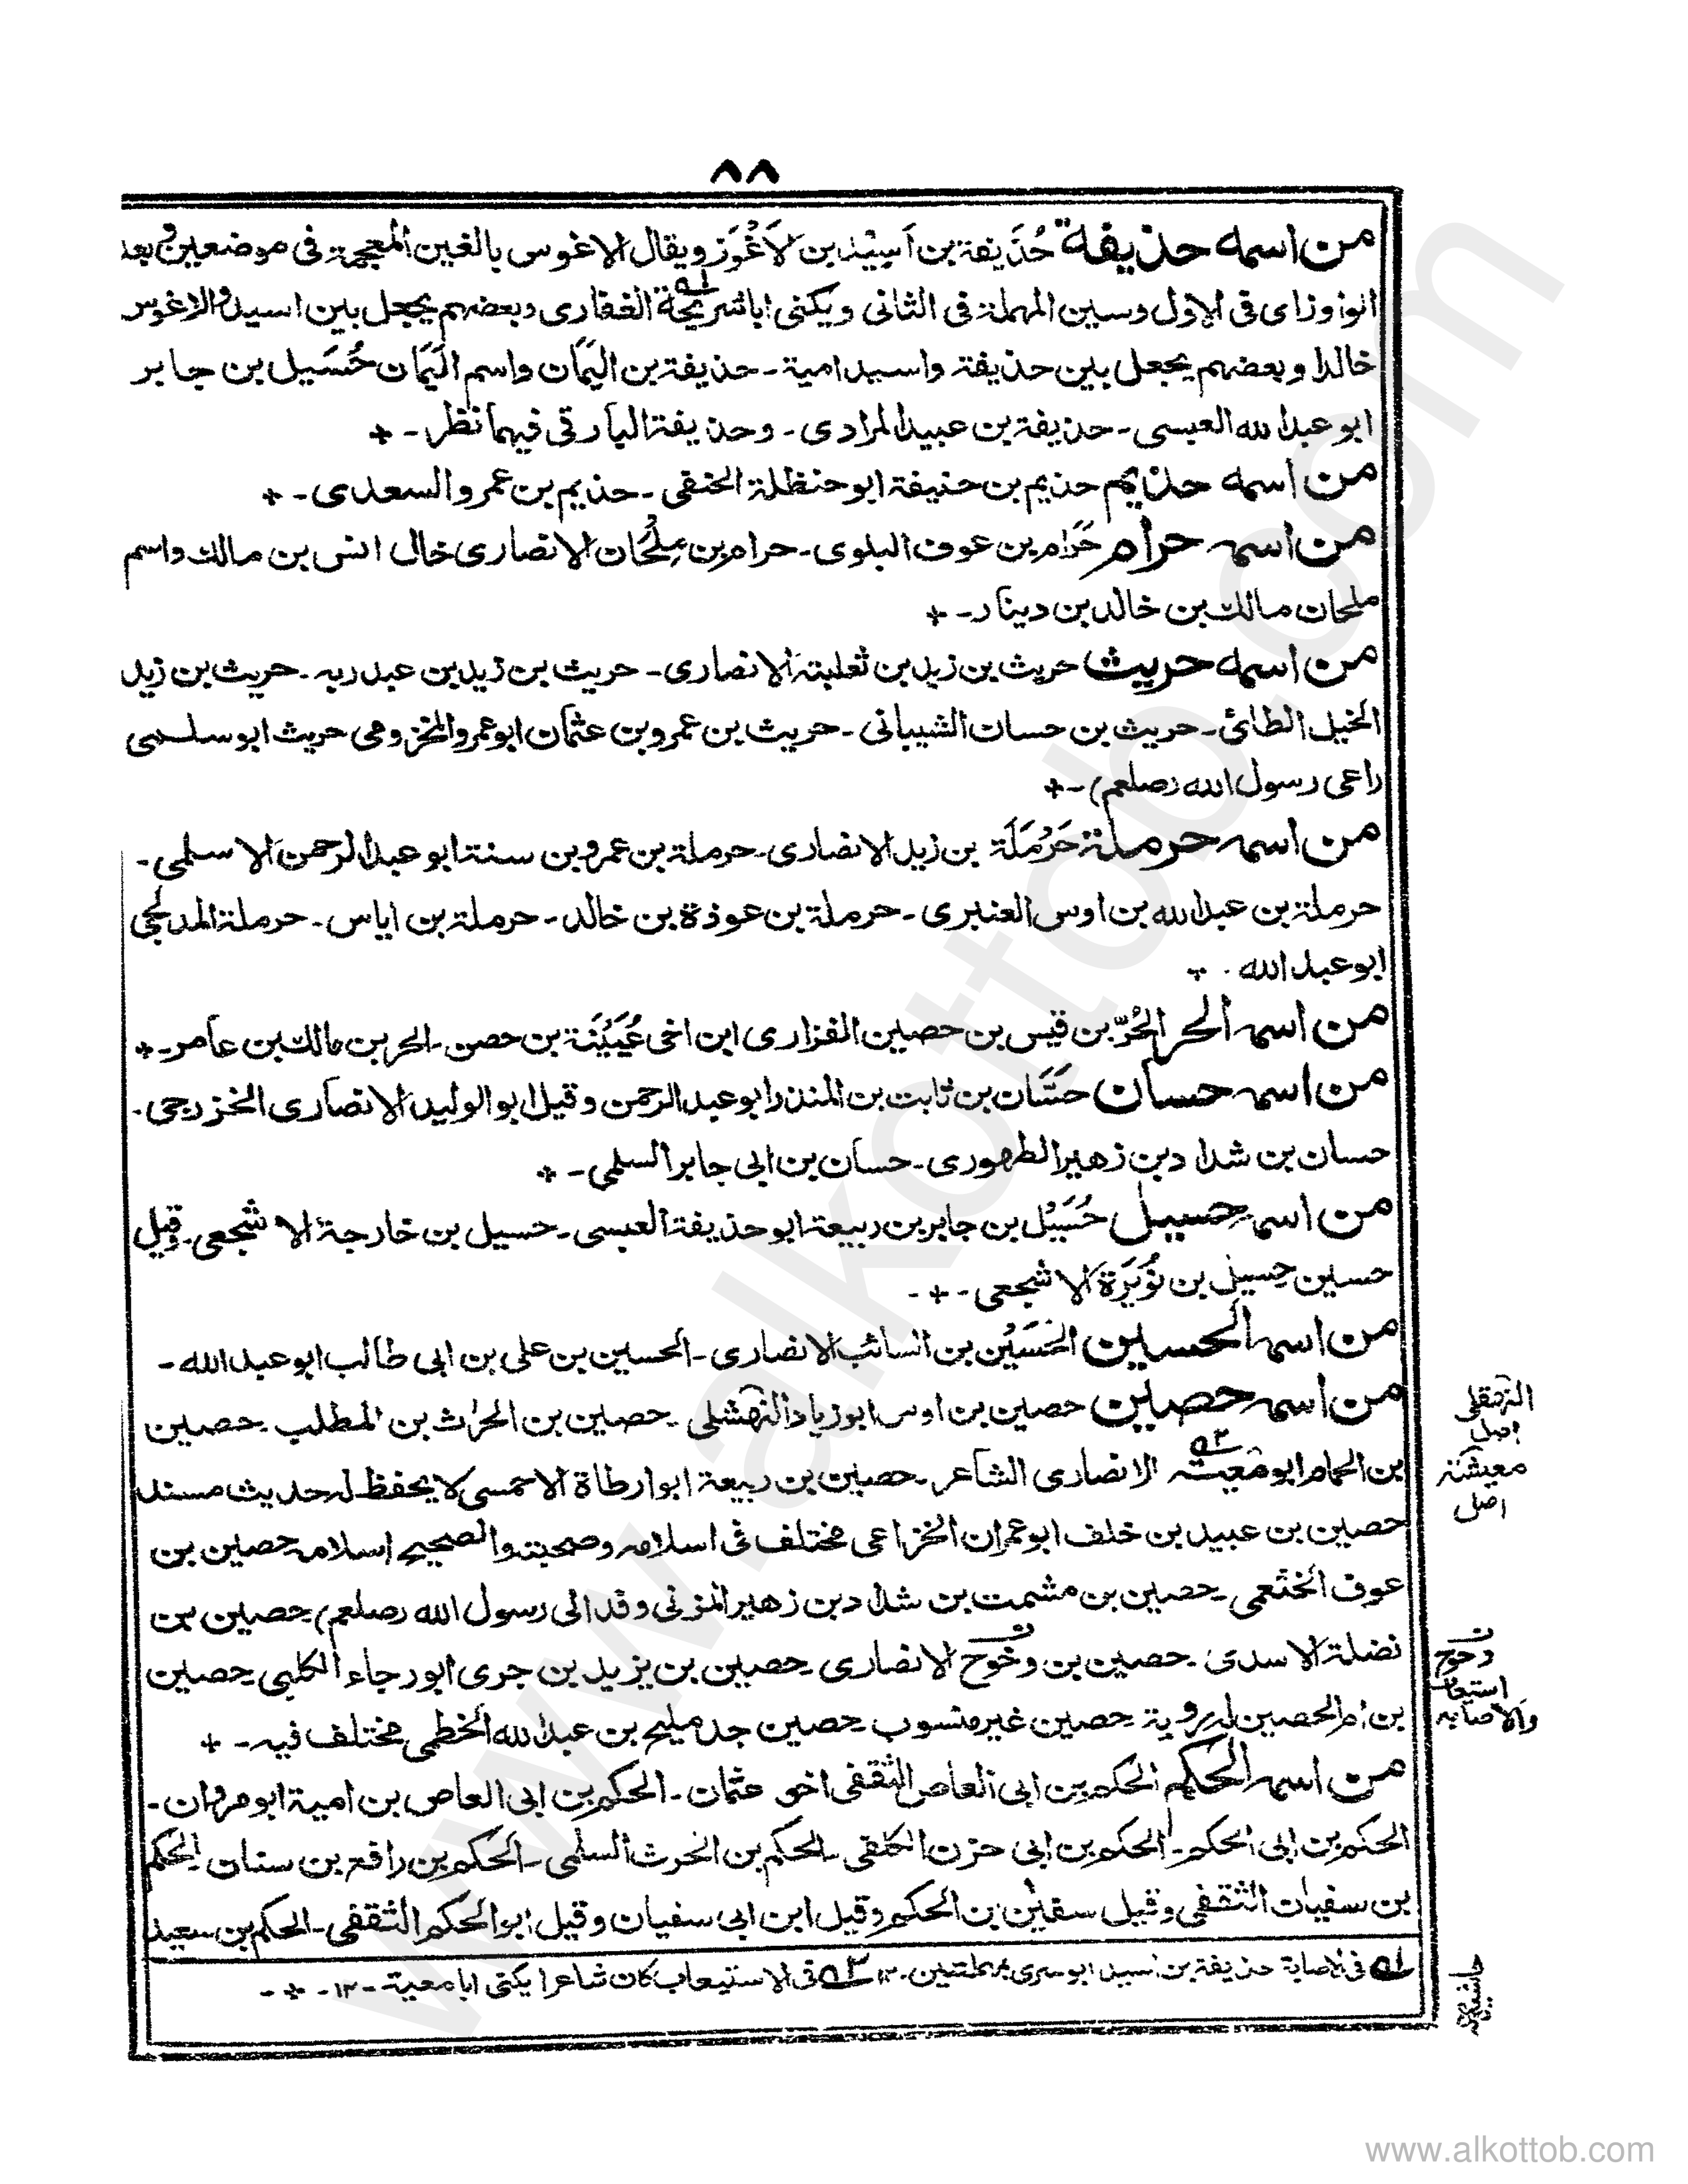 ٨٨
من اسمه حذيفة حُذَيفة بن اَسِيْد بن الاَغْوَز ويقال الاغوس بالغين المعجمة فى موضعين وبعد
الواو زاى فى الاول وسين المهملة فى الثانى ويكنى اباشريحة الغفارى وبعضهم يجعل بين اسيد والاغوس
خالدا وبعضهم يجعل بين حذيفة واسيد امية ـ حذيفة بن اليَمَان واسم اليَمَان حُسَيل بن جابر
ابو عبد الله العبسى ـ حذيفة بن عبيد المرادى ـ وحذيفة البارقى فيهما نظر ـ +
من اسمه حذيم حذيم بن حنيفة ابو حنظلة الحنفى ـ حذيم بن عمرو السعدى ـ +
من اسمه حرام حَرَام بن عوف البلوى ـ حرام بن مِلْحَان الانصارى خال انس بن مالك واسم
ملحان مالك بن خالد بن دينار ـ +
من اسمه حريث حريث بن زيد بن ثعلبة الانصارى ـ حريث بن زيد بن عبد ربه ـ حريث بن زيد
الخيل الطائى ـ حريث بن حسان الشيبانى ـ حريث بن عمرو بن عثمان ابو عمرو المخزومى حريث ابو سلمى
راعى رسول الله (صلعم) ـ +
من اسمه حرملة حَرْمَلَة بن زيد الانصارى ـ حرملة بن عمرو بن سنة ابو عبد الرحمن الاسلمى ـ
حرملة بن عبد الله بن اوس العنبرى ـ حرملة بن عوذة بن خالد ـ حرملة بن اياس ـ حرملة المدلجى
ابو عبد الله ٠ +
من اسمه الحر الحُرّ بن قيس بن حصين الفزارى ابن اخى عُيَيْنَة بن حصن ـ الحر بن مالك بن عامر ـ +
من اسمه حسان حَسَّان بن ثابت بن المنذر ابو عبد الرحمن وقيل ابو الوليد الانصارى الخزرجى ٠
حسان بن شداد بن زهير الطهورى ـ حسان بن ابى جابر السلمى ـ +
من اسمه حسيل حُسَيْل بن جابر بن ربيعة ابو حذيفة العبسى ـ حسيل بن خارجة الاشجعى ـ وقيل
حسين حسيل بن نُوَيرَة الاشجعى ـ + ـ
من اسمه الحسين الحُسَيْن بن السائب الانصارى ـ الحسين بن على بن ابى طالب ابو عبد الله ـ
من اسمه حصين حصين بن اوس ابو زياد النهشلى ـ حصين بن الحرٰث بن المطلب ـ حصين
بن الحمام ابو معيته الانصارى الشاعر ـ حصين بن ربيعة ابو ارطاة الاحمسى لا يحفظ له حديث مسند
حصين بن عبيد بن خلف ابو عمران الخزاعى مختلف فى اسلامه وصحبته والصحيح اسلامه حصين بن
عوف الخثعمى ـ حصين بن مشمت بن شداد بن زهير المزنى وفد الى رسول الله (صلعم) حصين بن
نضلة الاسدى ـ حصين بن وخوح الانصارى ـ حصين بن يزيد بن جرى ابو رجاء الكلبى ـ حصين
بن ام الحصين له روية ـ حصين غير منسوب ـ حصين جد مليح بن عبد الله الخطمى مختلف فيه ـ +
من اسمه الحكم الحكم بن ابى العاص الثقفى اخو عثمان ـ الحكم بن ابى العاص بن امية ابو مروان ـ
الحكم بن ابى الحكم ـ الحكم بن ابى حزن الكلفى ـ الحكم بن الحرث السلمى ـ الحكم بن رافع بن سنان الحكم
بن سفيان الثقفى وقيل سفين بن الحكم وقيل ابن ابى سفيان وقيل ابو الحكم الثقفى ـ الحكم بن سعيد
١ه فى الاصابة حذيفة بن اسيد ابو سرى بمهملتين ١٢ ٢ه فى الاستيعاب كان شاعرا يكنى ابا معية ـ ١٢ ـ + ـ
اصل
اصل
ن
وحوح
استيعاب
والاصابه
www.alkottob.com
www.alkottob.com